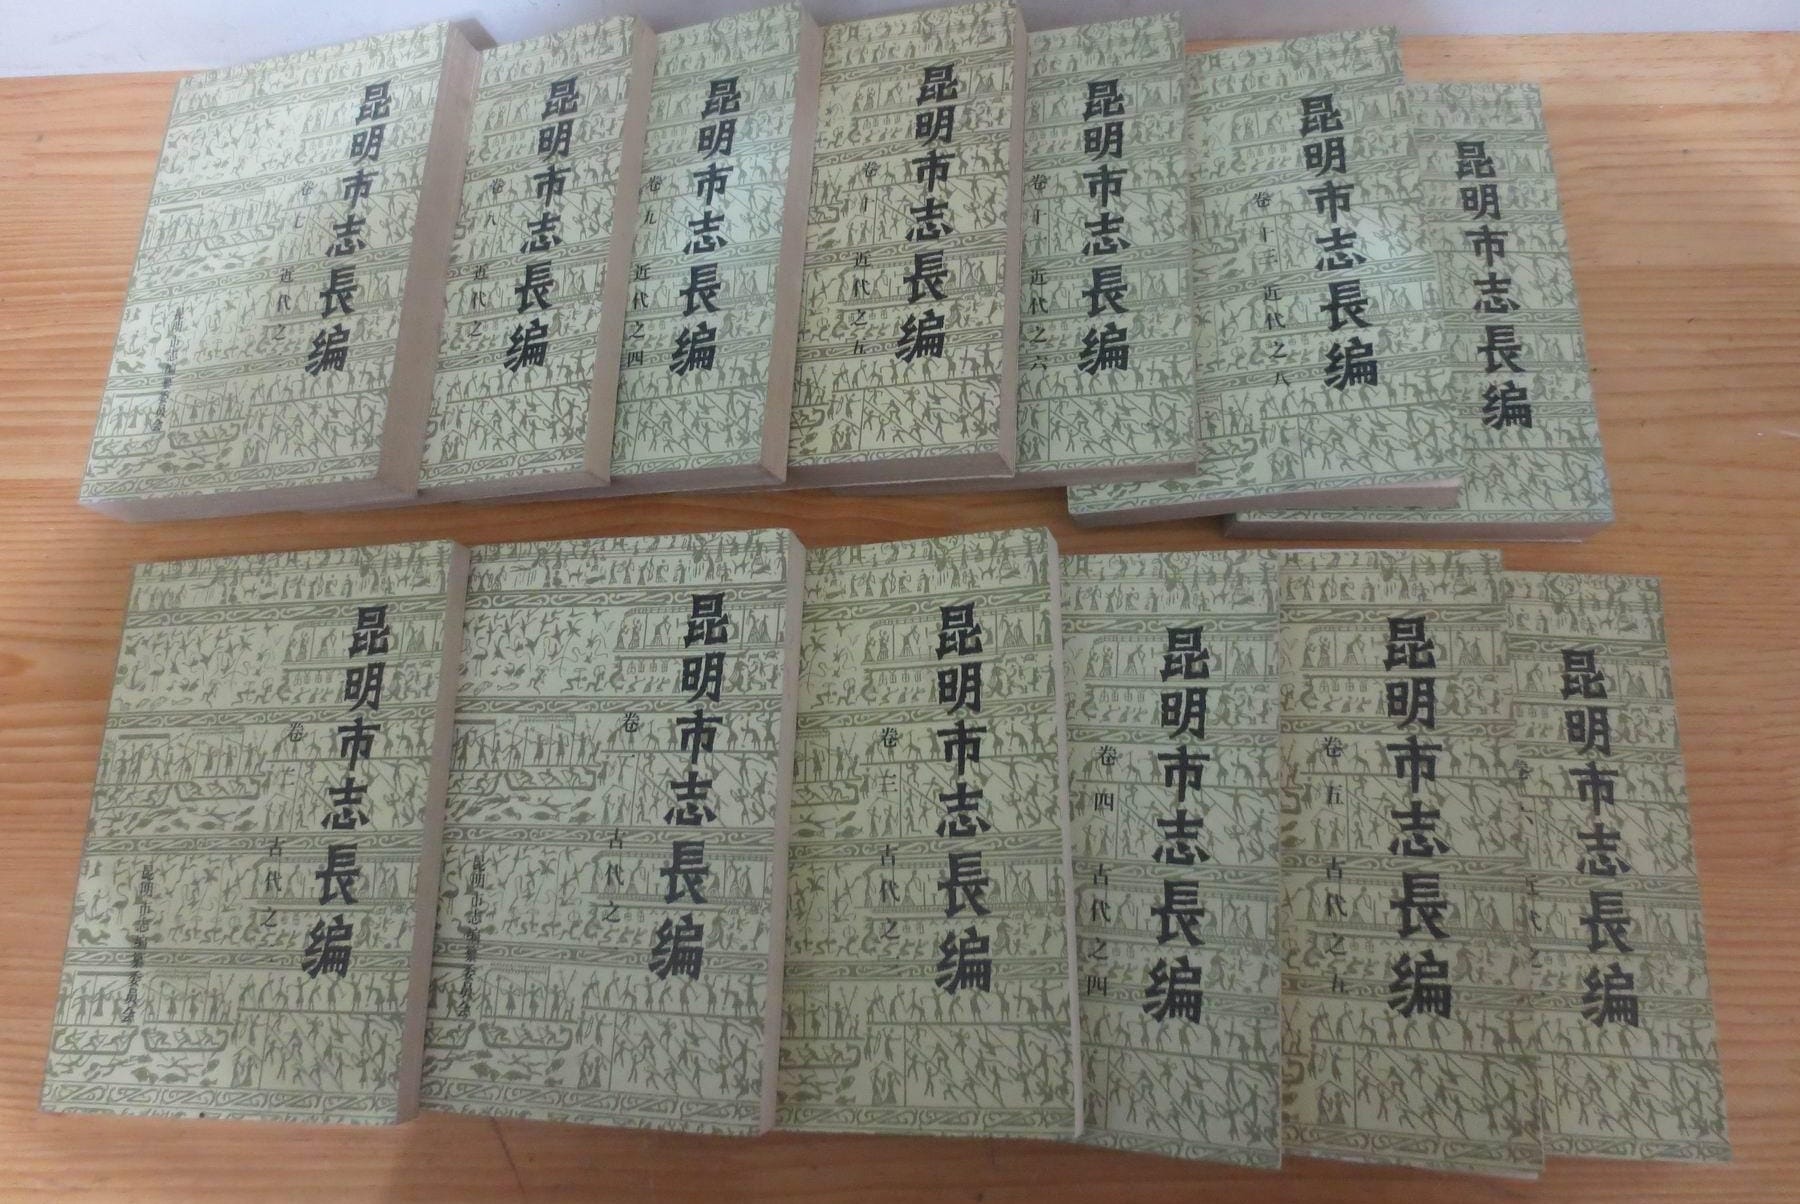 昆明市志長编
卷七
近代之二
昆明市志编纂委员会
昆明市志長编
卷八
近代之三
昆明市志長编
卷九
近代之四
昆明市志長编
卷十
近代之五
昆明市志長编
卷十一
近代之六
昆明市志長编
卷十三
近代之八
昆明市志長编
昆明市志長编
卷二
古代之二
昆明市志编纂委员会
昆明市志長编
卷一
古代之一
昆明市志编纂委员会
昆明市志長编
卷三
古代之三
昆明市志長编
卷四
古代之四
昆明市志長编
卷五
古代之五
昆明市志長编